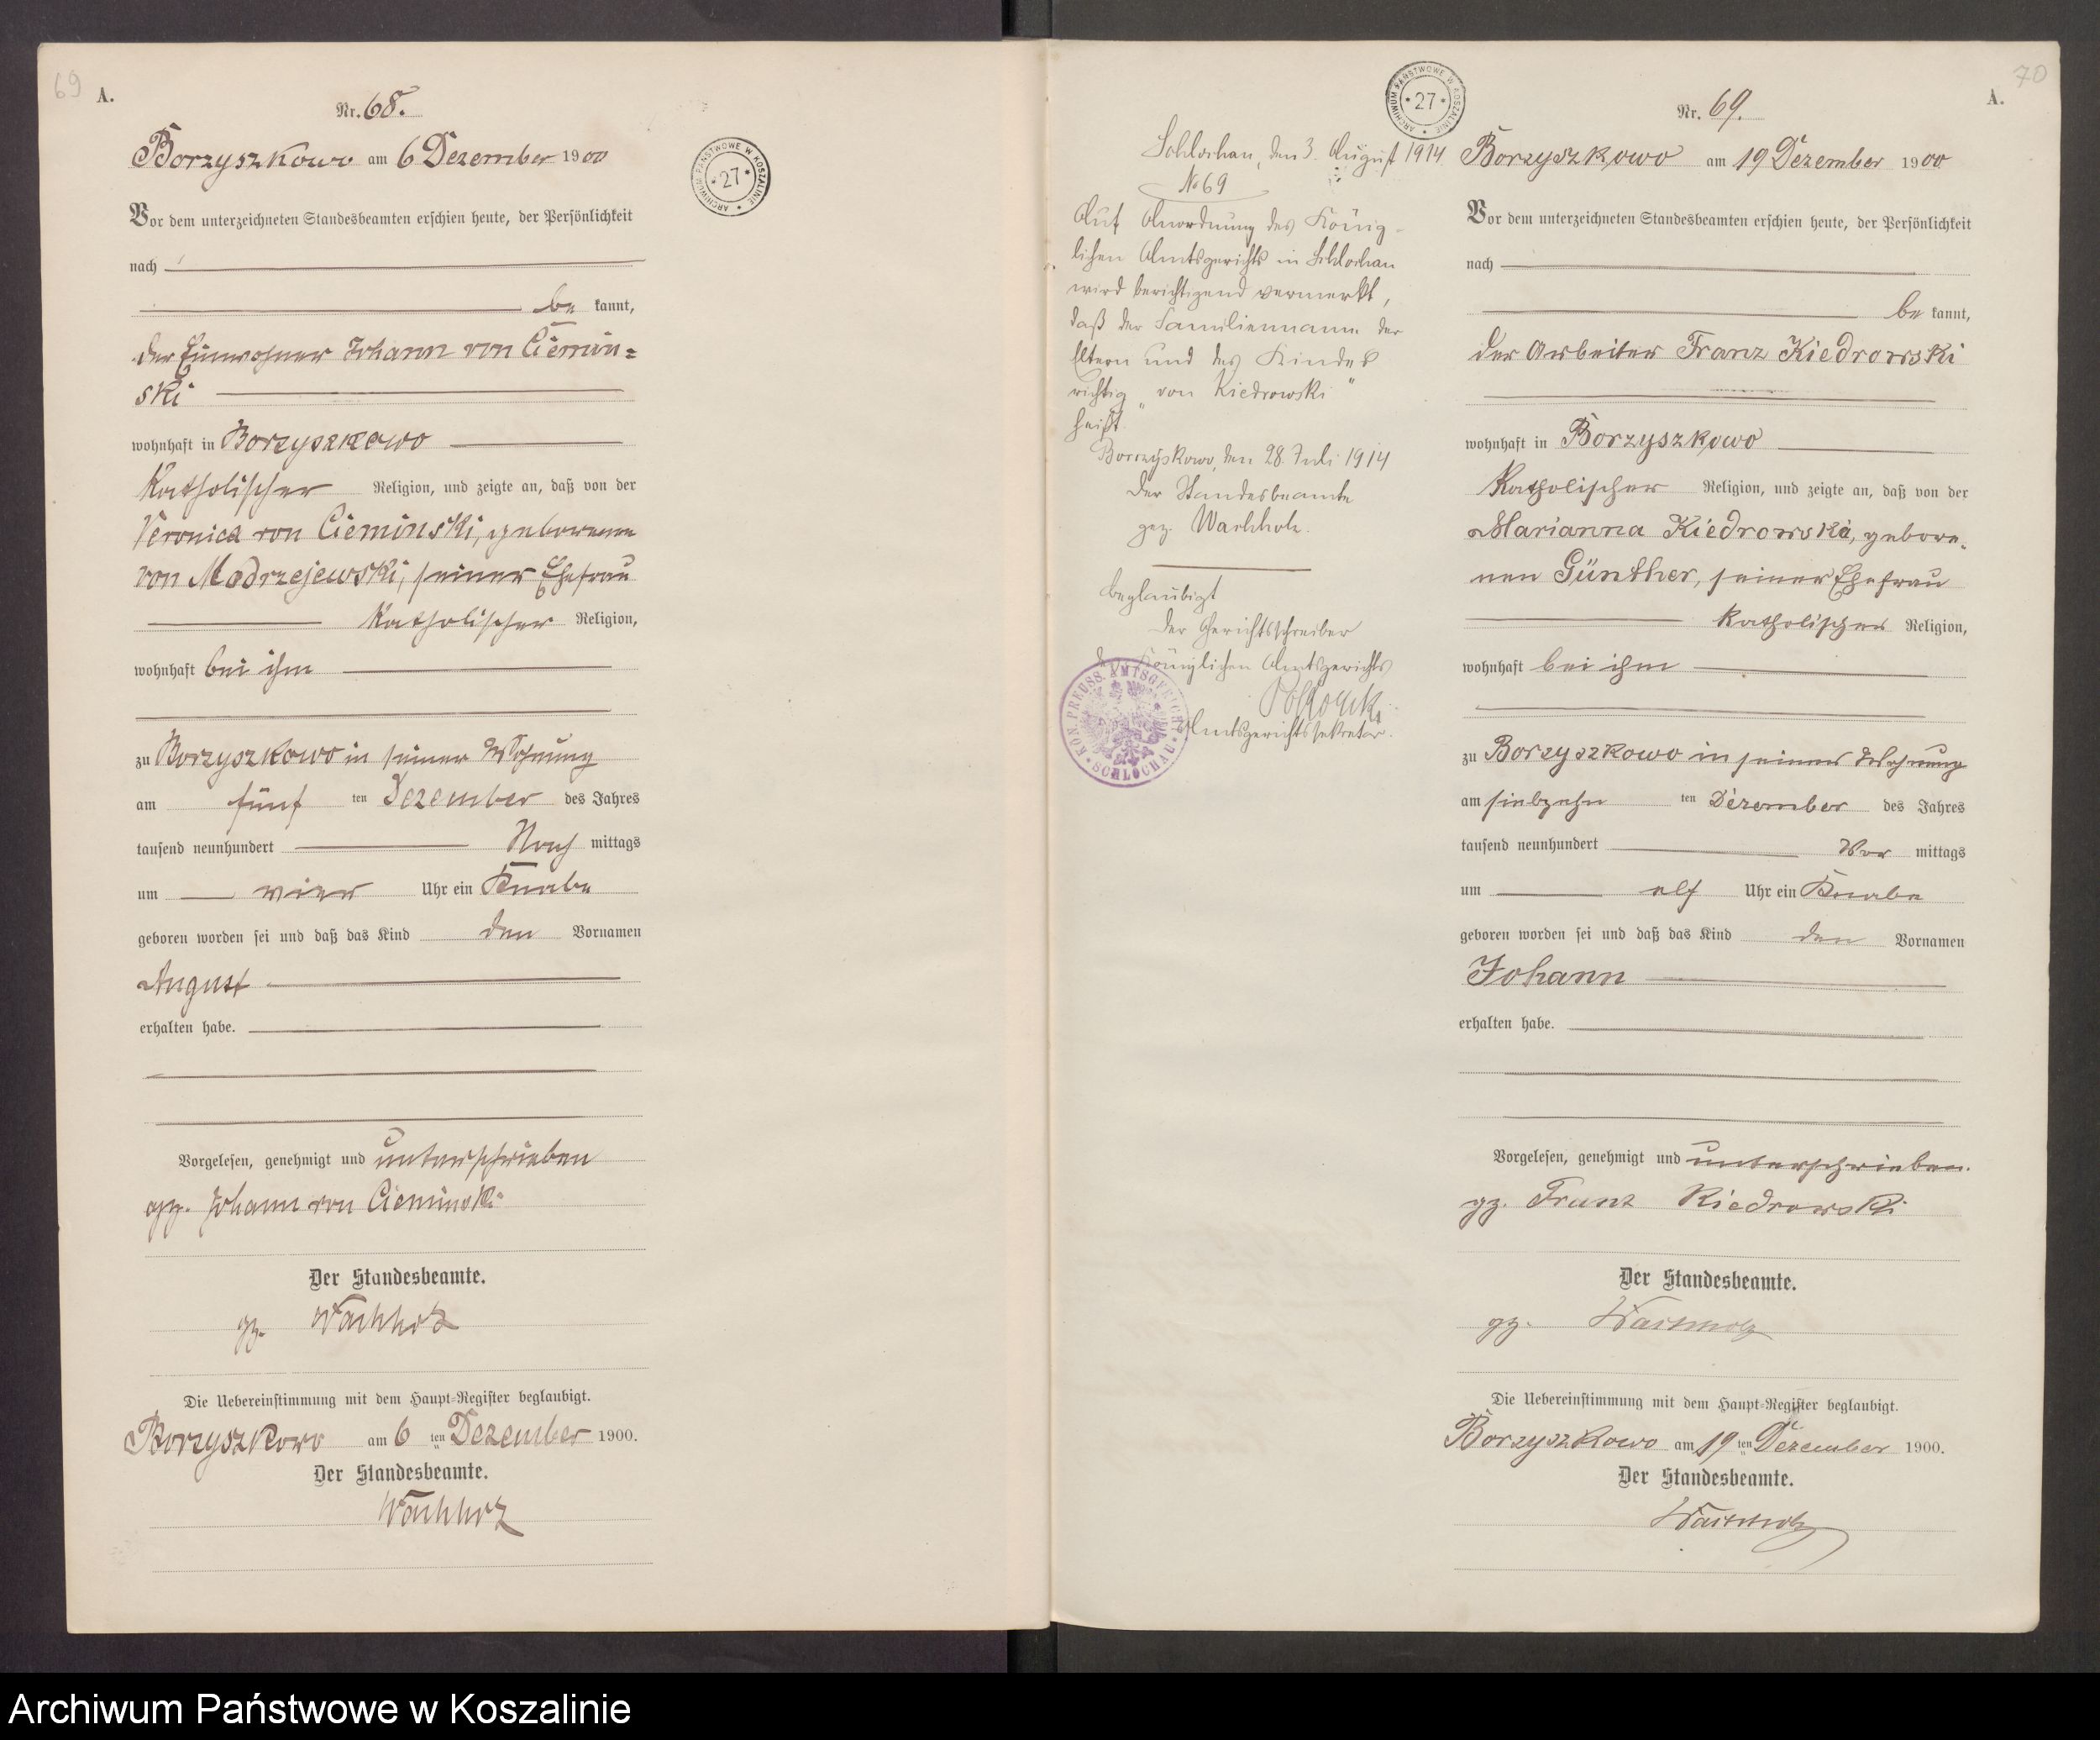 69
A.
Nr. 68.
Borzyszkowo am 6 Dezember 1900
ARCHIWUM PAŃSTWOWE W KOSZALINIE * 27 *
Vor dem unterzeichneten Standesbeamten erschien heute, der Persönlichkeit
nach
be kannt,
der Einwohner Johann von Ciemin=
ski
wohnhaft in Borzyszkowo
Katholischer Religion, und zeigte an, daß von der
Veronica von Cieminski, geborenen
von Modrzejewski, seiner Ehefrau
Katholischer Religion,
wohnhaft bei ihm
zu Borzyszkowo in seiner Wohnung
am fünf ten Dezember des Jahres
tausend neunhundert Nach mittags
um vier Uhr ein Knabe
geboren worden sei und daß das Kind den Vornamen
August
erhalten habe.
Vorgelesen, genehmigt und unterschrieben
gez. Johann von Cieminski
Der Standesbeamte.
gz. Wachholz
Die Uebereinstimmung mit dem Haupt-Register beglaubigt.
Borzyszkowo am 6 ten Dezember 1900.
Der Standesbeamte.
Wachholz
ARCHIWUM PAŃSTWOWE W KOSZALINIE * 27 *
Schlochau, den 3. August 1914
No 69
Auf Anordnung des König-
lichen Amtsgerichts in Schlochau
wird berichtigend vermerkt,
daß der Familienname der
Eltern und des Kindes
richtig „von Kiedrowski"
heißt.
Borzyskowo, den 28. Juli 1914
Der Standesbeamte
gez. Wachholz.
beglaubigt
Der Gerichtsschreiber
des Königlichen Amtsgerichts
Amtsgerichtssekretär.
KÖN. PREUSS. AMTSGERICHT * SCHLOCHAU *
70
A.
Nr. 69.
Borzyszkowo am 19 Dezember 1900
Vor dem unterzeichneten Standesbeamten erschien heute, der Persönlichkeit
nach
be kannt,
der Arbeiter Franz Kiedrowski
wohnhaft in Borzyszkowo
Katholischer Religion, und zeigte an, daß von der
Marianna Kiedrowski, gebore-
nen Günther, seiner Ehefrau
katholischer Religion,
wohnhaft bei ihm
zu Borzyszkowo in seiner Wohnung
am siebzehn ten Dezember des Jahres
tausend neunhundert Vor mittags
um elf Uhr ein Knabe
geboren worden sei und daß das Kind den Vornamen
Johann
erhalten habe.
Vorgelesen, genehmigt und unterschrieben.
gz. Franz Kiedrowski
Der Standesbeamte.
gz. Wachholz
Die Uebereinstimmung mit dem Haupt-Register beglaubigt.
Borzyszkowo am 19 ten Dezember 1900.
Der Standesbeamte.
Wachholz
Archiwum Państwowe w Koszalinie